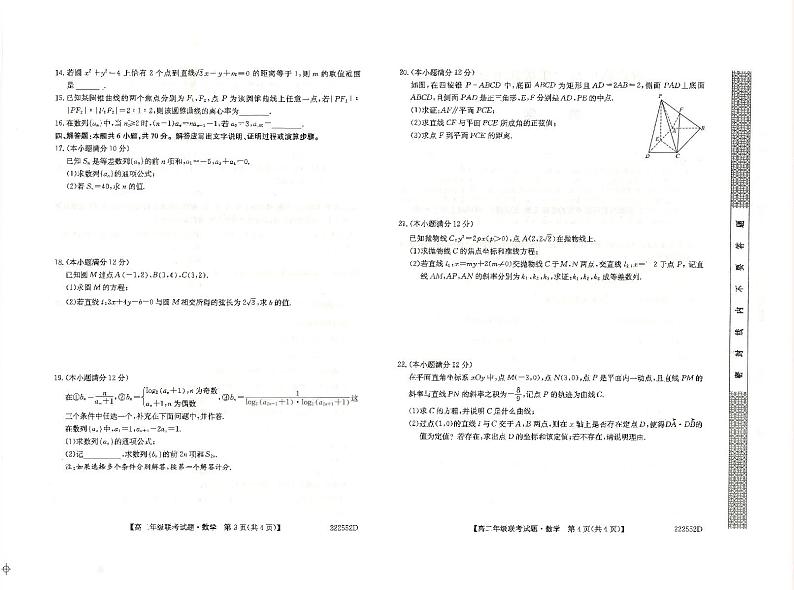 14.若圆x²+y²=4上恰有2个点到直线√3x-y+m=0的距离等于1,则m的取值范围
是______.
15.已知某圆锥曲线的两个焦点分别为F₁,F₂,点P为该圆锥曲线上任意一点,若|PF₁|:
|PF₂|:|F₁F₂|=2:1:2,则该圆锥曲线的离心率为______.
16.在数列{aₙ}中,当n≥2时,(n-1)aₙ=naₙ₋₁-1,若a₂=3,
四、解答题:本题共6小题,共70分。解答应写出文字说明、证明过程或演算步骤。
17.(本小题满分10分)
已知Sₙ是等差数列{aₙ}的前n项和,
(1)求数列{aₙ}的通项公式;
(2)若Sₙ=40,求n的值.
18.(本小题满分12分)
已知圆M过点A(-1,2),B(1,4),C(3,2).
(1)求圆M的方程;
(2)若直线l:3x+4y-b=0与圆M相交所得的弦长为2√3,求b的值.
19.(本小题满分12分)
在①bₙ=n/(aₙ+1),②bₙ={log₂(aₙ+1),n为奇数 aₙ+1,n为偶数,③bₙ=1/(log₂(a₂ₙ₋₁+1)·log₂(a₂ₙ₊₁+1))这
三个条件中任选一个,补充在下面问题中,并作答.
在数列{aₙ}中,a₁=1,aₙ₊₁-2aₙ=1.
(1)求数列{aₙ}的通项公式;
(2)记______,求数列{bₙ}的前2n项和S₂ₙ.
注:如果选择多个条件分别解答,按第一个解答计分.
【高二年级联考试题·数学 第3页(共4页)】 222552D
20.(本小题满分12分)
如图,在四棱锥P-ABCD中,底面ABCD为矩形且AD=2AB=2,侧面PAD⊥底面
ABCD,且侧面PAD是正三角形,E,F分别是AD,PB的中点.
(1)求证:AF∥平面PCE;
(2)求直线CF与平面PCE所成角的正弦值;
(3)求点F到平面PCE的距离.
P
F
B
E
D
C
21.(本小题满分12分)
已知抛物线C:y²=2px(p>0),点A(2,2√2)在抛物线上.
(1)求抛物线C的焦点坐标和准线方程;
(2)若直线l₁:x=my+2(m≠0)交抛物线C于M,N两点,交直线l₂:x=-2于点P,记直
线AM,AP,AN的斜率分别为k₁,k₂,k₃,求证:k₁,k₂,k₃成等差数列.
22.(本小题满分12分)
在平面直角坐标系xOy中,点M(-3,0),点N(3,0),点P是平面内一动点,且直线PM的
斜率与直线PN的斜率之积为-8/9,记点P的轨迹为曲线C.
(1)求C的方程,并说明C是什么曲线;
(2)过点(1,0)的直线l与C交于A,B两点,则在x轴上是否存在定点D,使得DA·DB的
值为定值?若存在,求出点D的坐标和该定值;若不存在,请说明理由.
【高二年级联考试题·数学 第4页(共4页)】 222552D
密 封 线 内 不 要 答 题